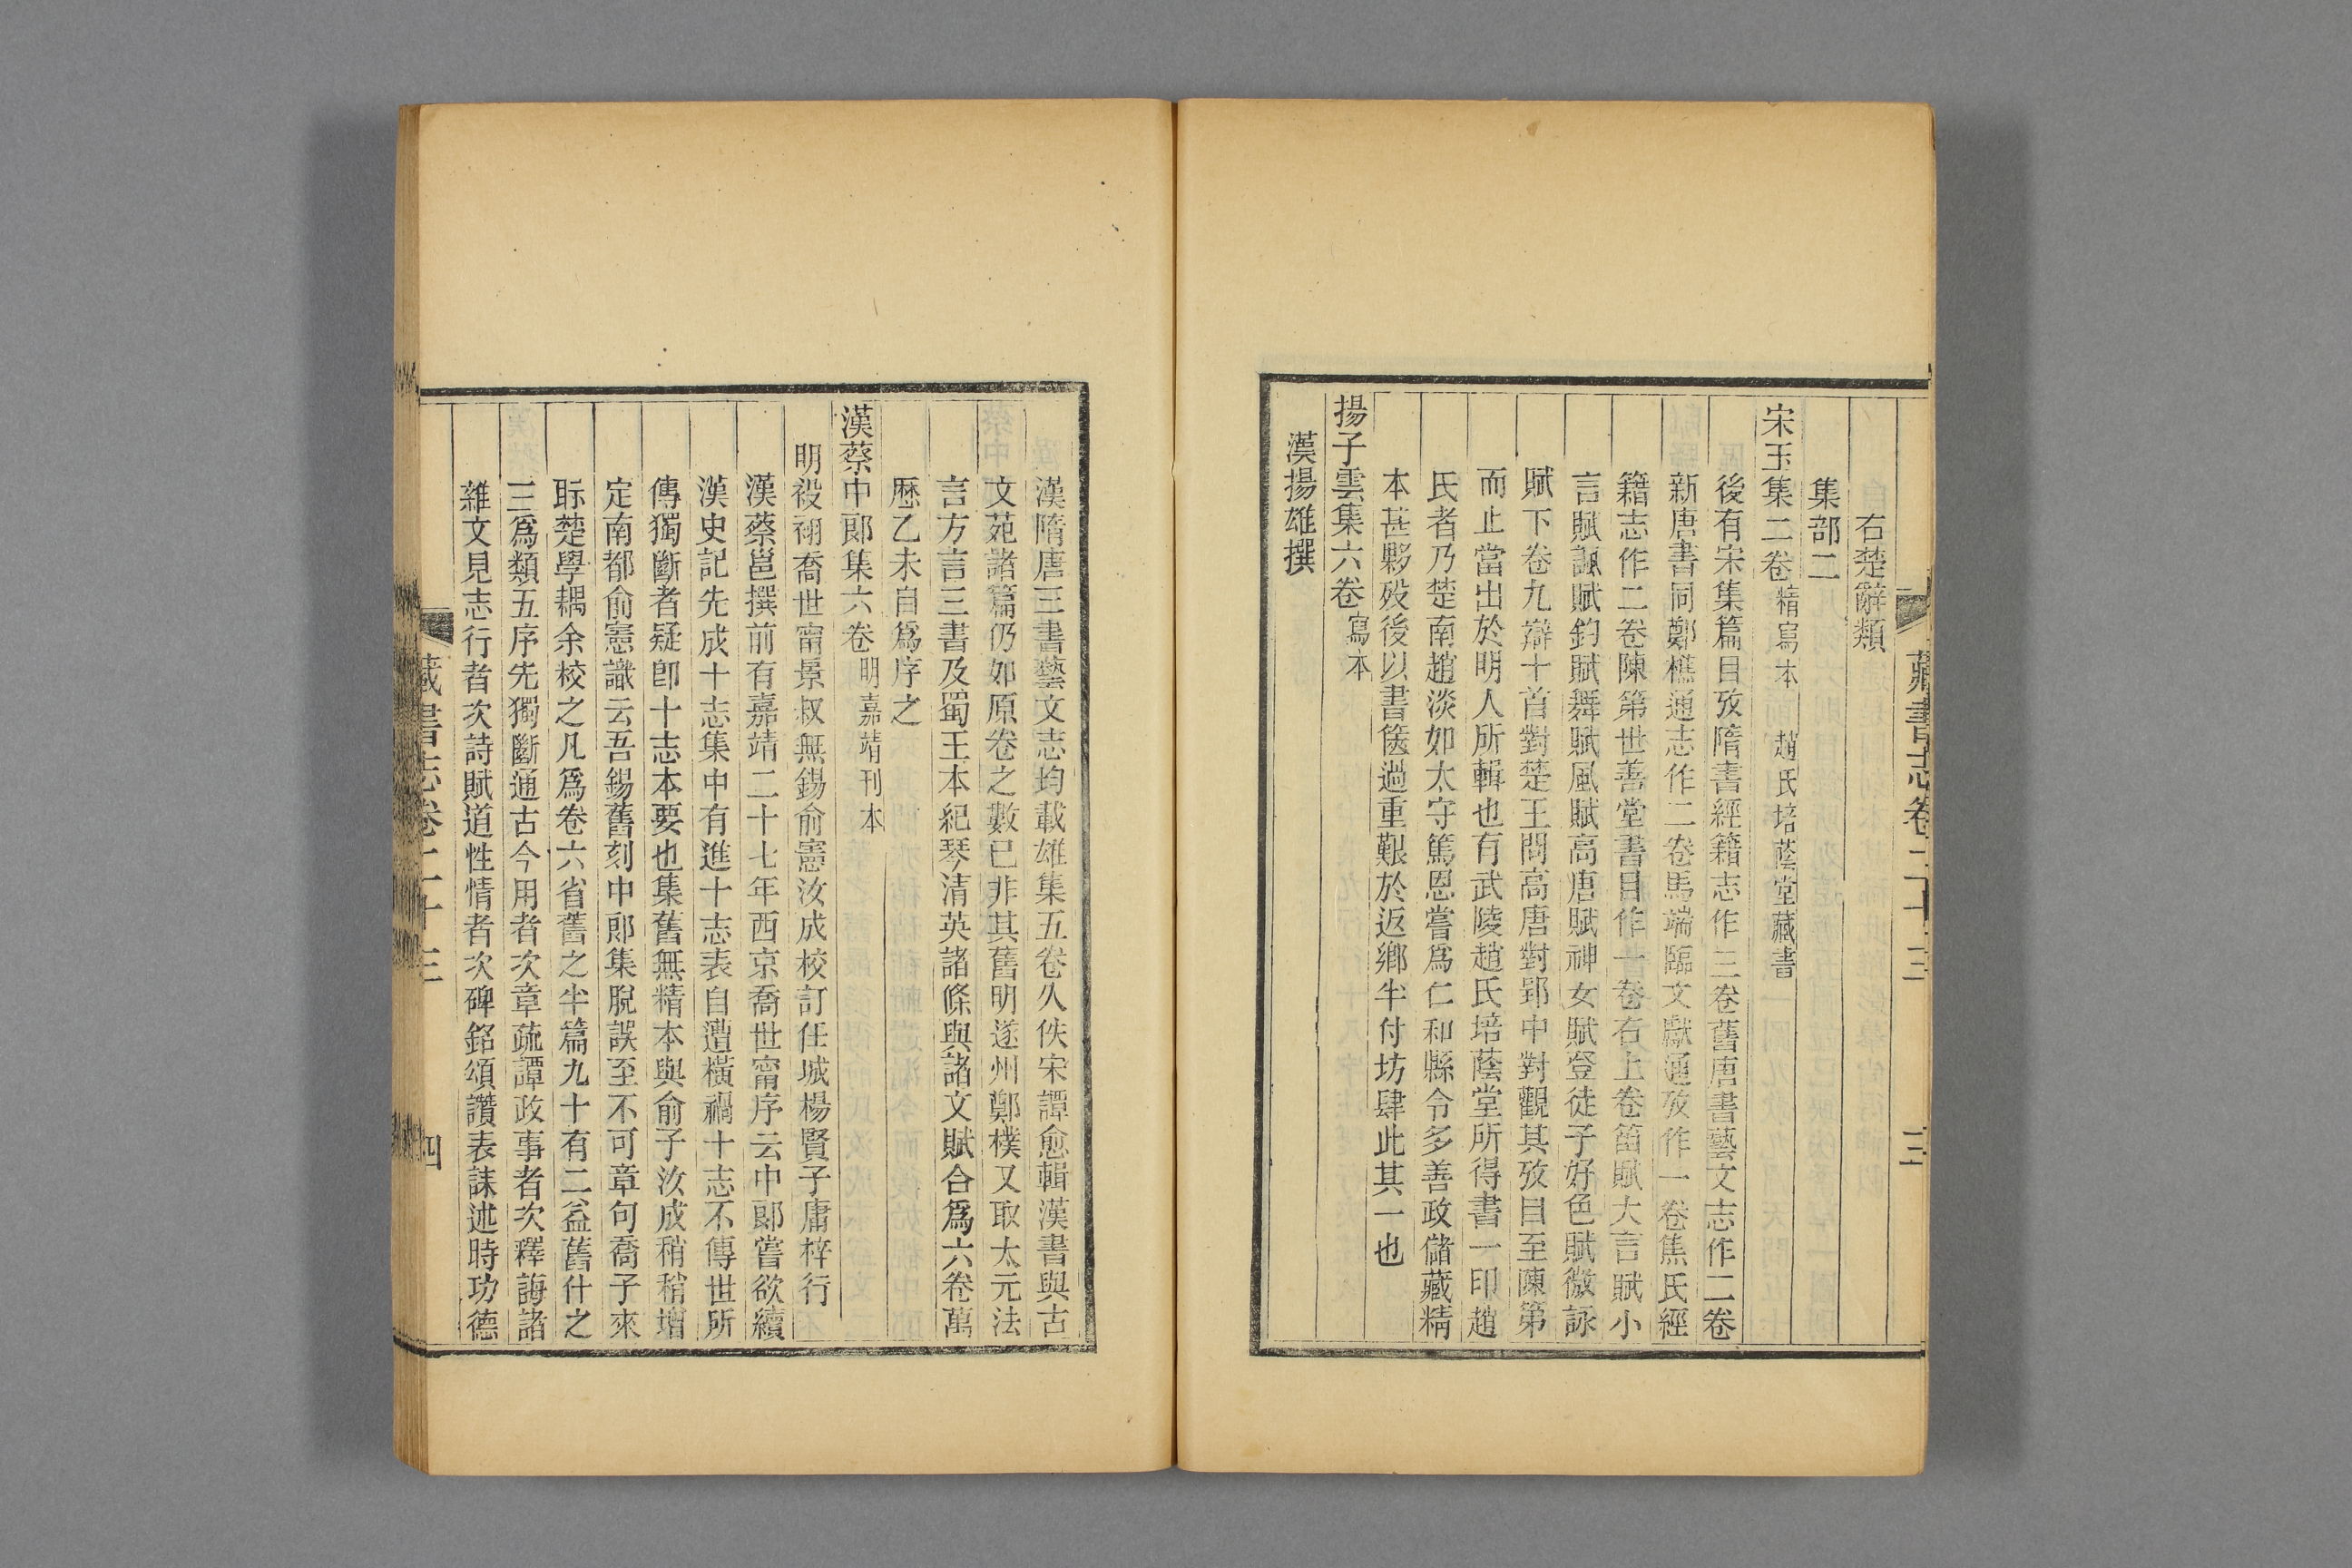 藏書志卷二十三
三
右楚辭類
集部二
宋玉集二卷精寫本 趙氏培蔭堂藏書
後有宋集篇目攷隋書經籍志作三卷舊唐書藝文志作二卷
新唐書同鄭樵通志作二卷馬端臨文獻通攷作一卷焦氏經
籍志作二卷陳第世善堂書目作一卷右上卷笛賦大言賦小
言賦諷賦釣賦舞賦風賦高唐賦神女賦登徒子好色賦微詠
賦下卷九辯十首對楚王問高唐對郢中對觀其攷目至陳第
而止當出於明人所輯也有武陵趙氏培蔭堂所得書一印趙
氏者乃楚南趙淡如太守篤恩嘗爲仁和縣令多善政儲藏精
本甚夥歿後以書篋過重艱於返鄉半付坊肆此其一也
揚子雲集六卷寫本
漢揚雄撰
漢隋唐三書藝文志均載雄集五卷久佚宋譚愈輯漢書與古
文苑諸篇仍如原卷之數已非其舊明遂州鄭樸又取太元法
言方言三書及蜀王本紀琴清英諸條與諸文賦合爲六卷萬
厯乙未自爲序之
漢蔡中郎集六卷明嘉靖刊本
明祋祤喬世甯景叔無錫俞憲汝成校訂任城楊賢子庸梓行
漢蔡邕撰前有嘉靖二十七年西京喬世甯序云中郎嘗欲續
漢史記先成十志集中有進十志表自遭橫禍十志不傳世所
傳獨斷者疑卽十志本要也集舊無精本與俞子汝成稍稍增
定南都俞憲識云吾錫舊刻中郎集脫誤至不可章句喬子來
眎楚學耦余校之凡爲卷六省舊之半篇九十有二益舊什之
三爲類五序先獨斷通古今用者次章疏譚政事者次釋誨諸
雜文見志行者次詩賦道性情者次碑銘頌讚表誄述時功德
藏書志卷二十三
四